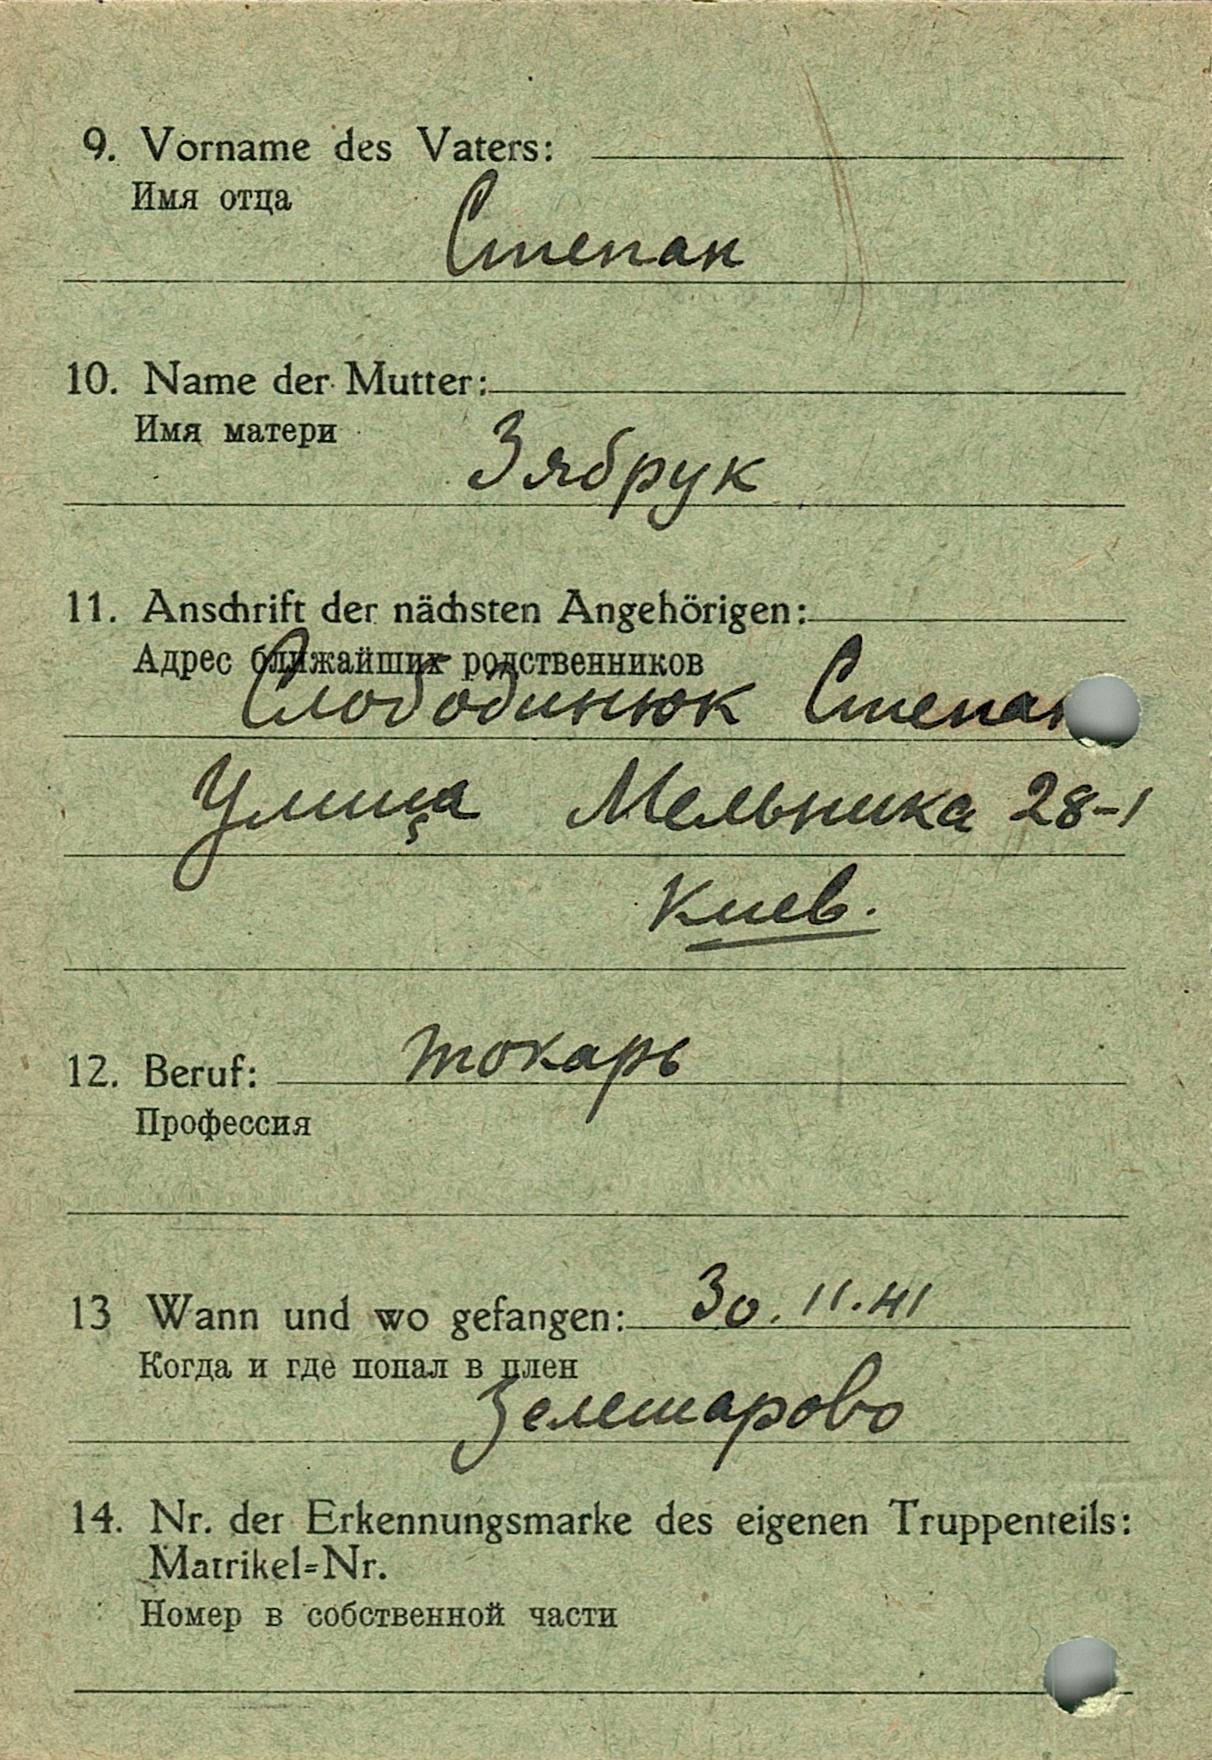 9. Vorname des Vaters:
Имя отца
Степан
10. Name der Mutter:
Имя матери
Зябрук
11. Anschrift der nächsten Angehörigen:
Адрес ближайших родственников
Слободинюк Степан
Улица Мельника 28-1
Киев.
12. Beruf: токарь
Профессия
13 Wann und wo gefangen: 30.11.41
Когда и где попал в плен
Зелешарово
14. Nr. der Erkennungsmarke des eigenen Truppenteils:
Matrikel=Nr.
Номер в собственной части